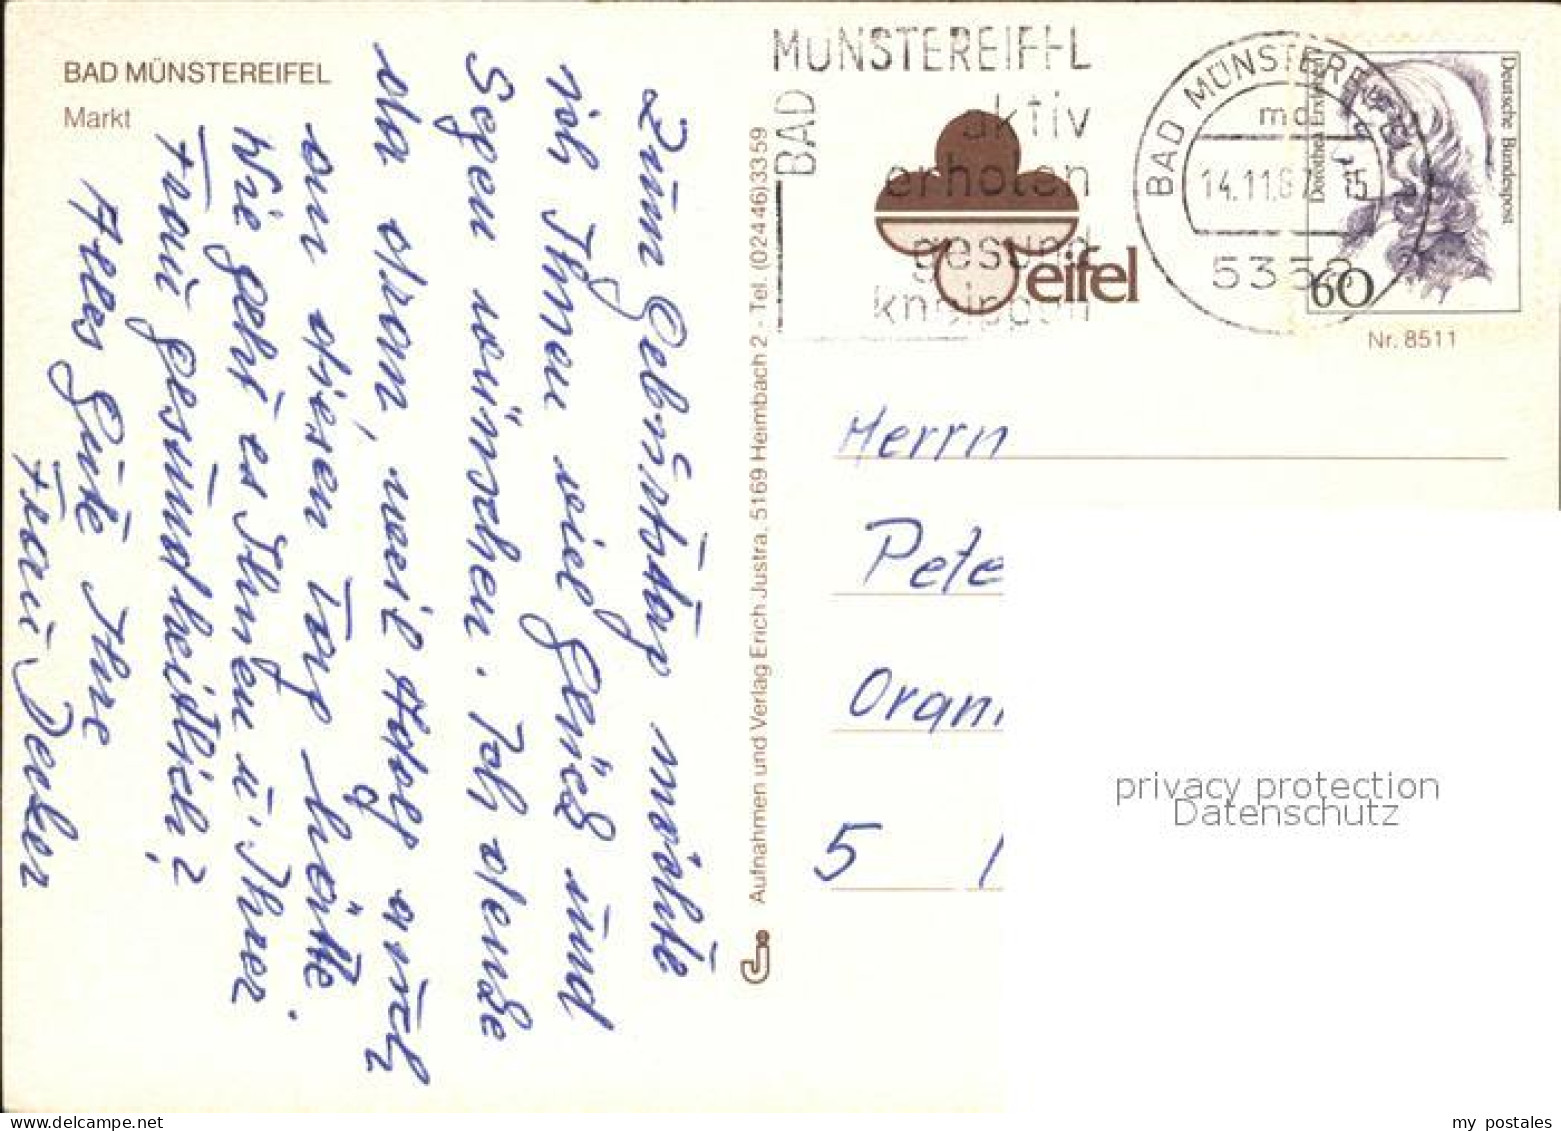 BAD MÜNSTEREIFEL
Markt
Zum Gebürtstag möchte
ich Ihnen viel Glück und
Segen wünschen. Ich denke
da dran, weil Adolf auch
an diesen Tag hätte.
Wie geht es Ihnen u. Ihrer
Frau gesundheitlich?
Alles Gute Ihre
Frau Denker
Aufnahmen und Verlag Erich Justra, 5169 Heimbach 2 - Tel. (024 46) 33 59
BAD
MÜNSTEREIFEL
aktiv
erholen
gesund
kneippen
eifel
BAD MÜNSTEREIFEL
md
14.11.87 15
5358
Deutsche Bundespost
Dorothea Erxleben
60
Nr. 8511
Herrn
Pete
Organi
5 1
privacy protection
Datenschutz
my postales